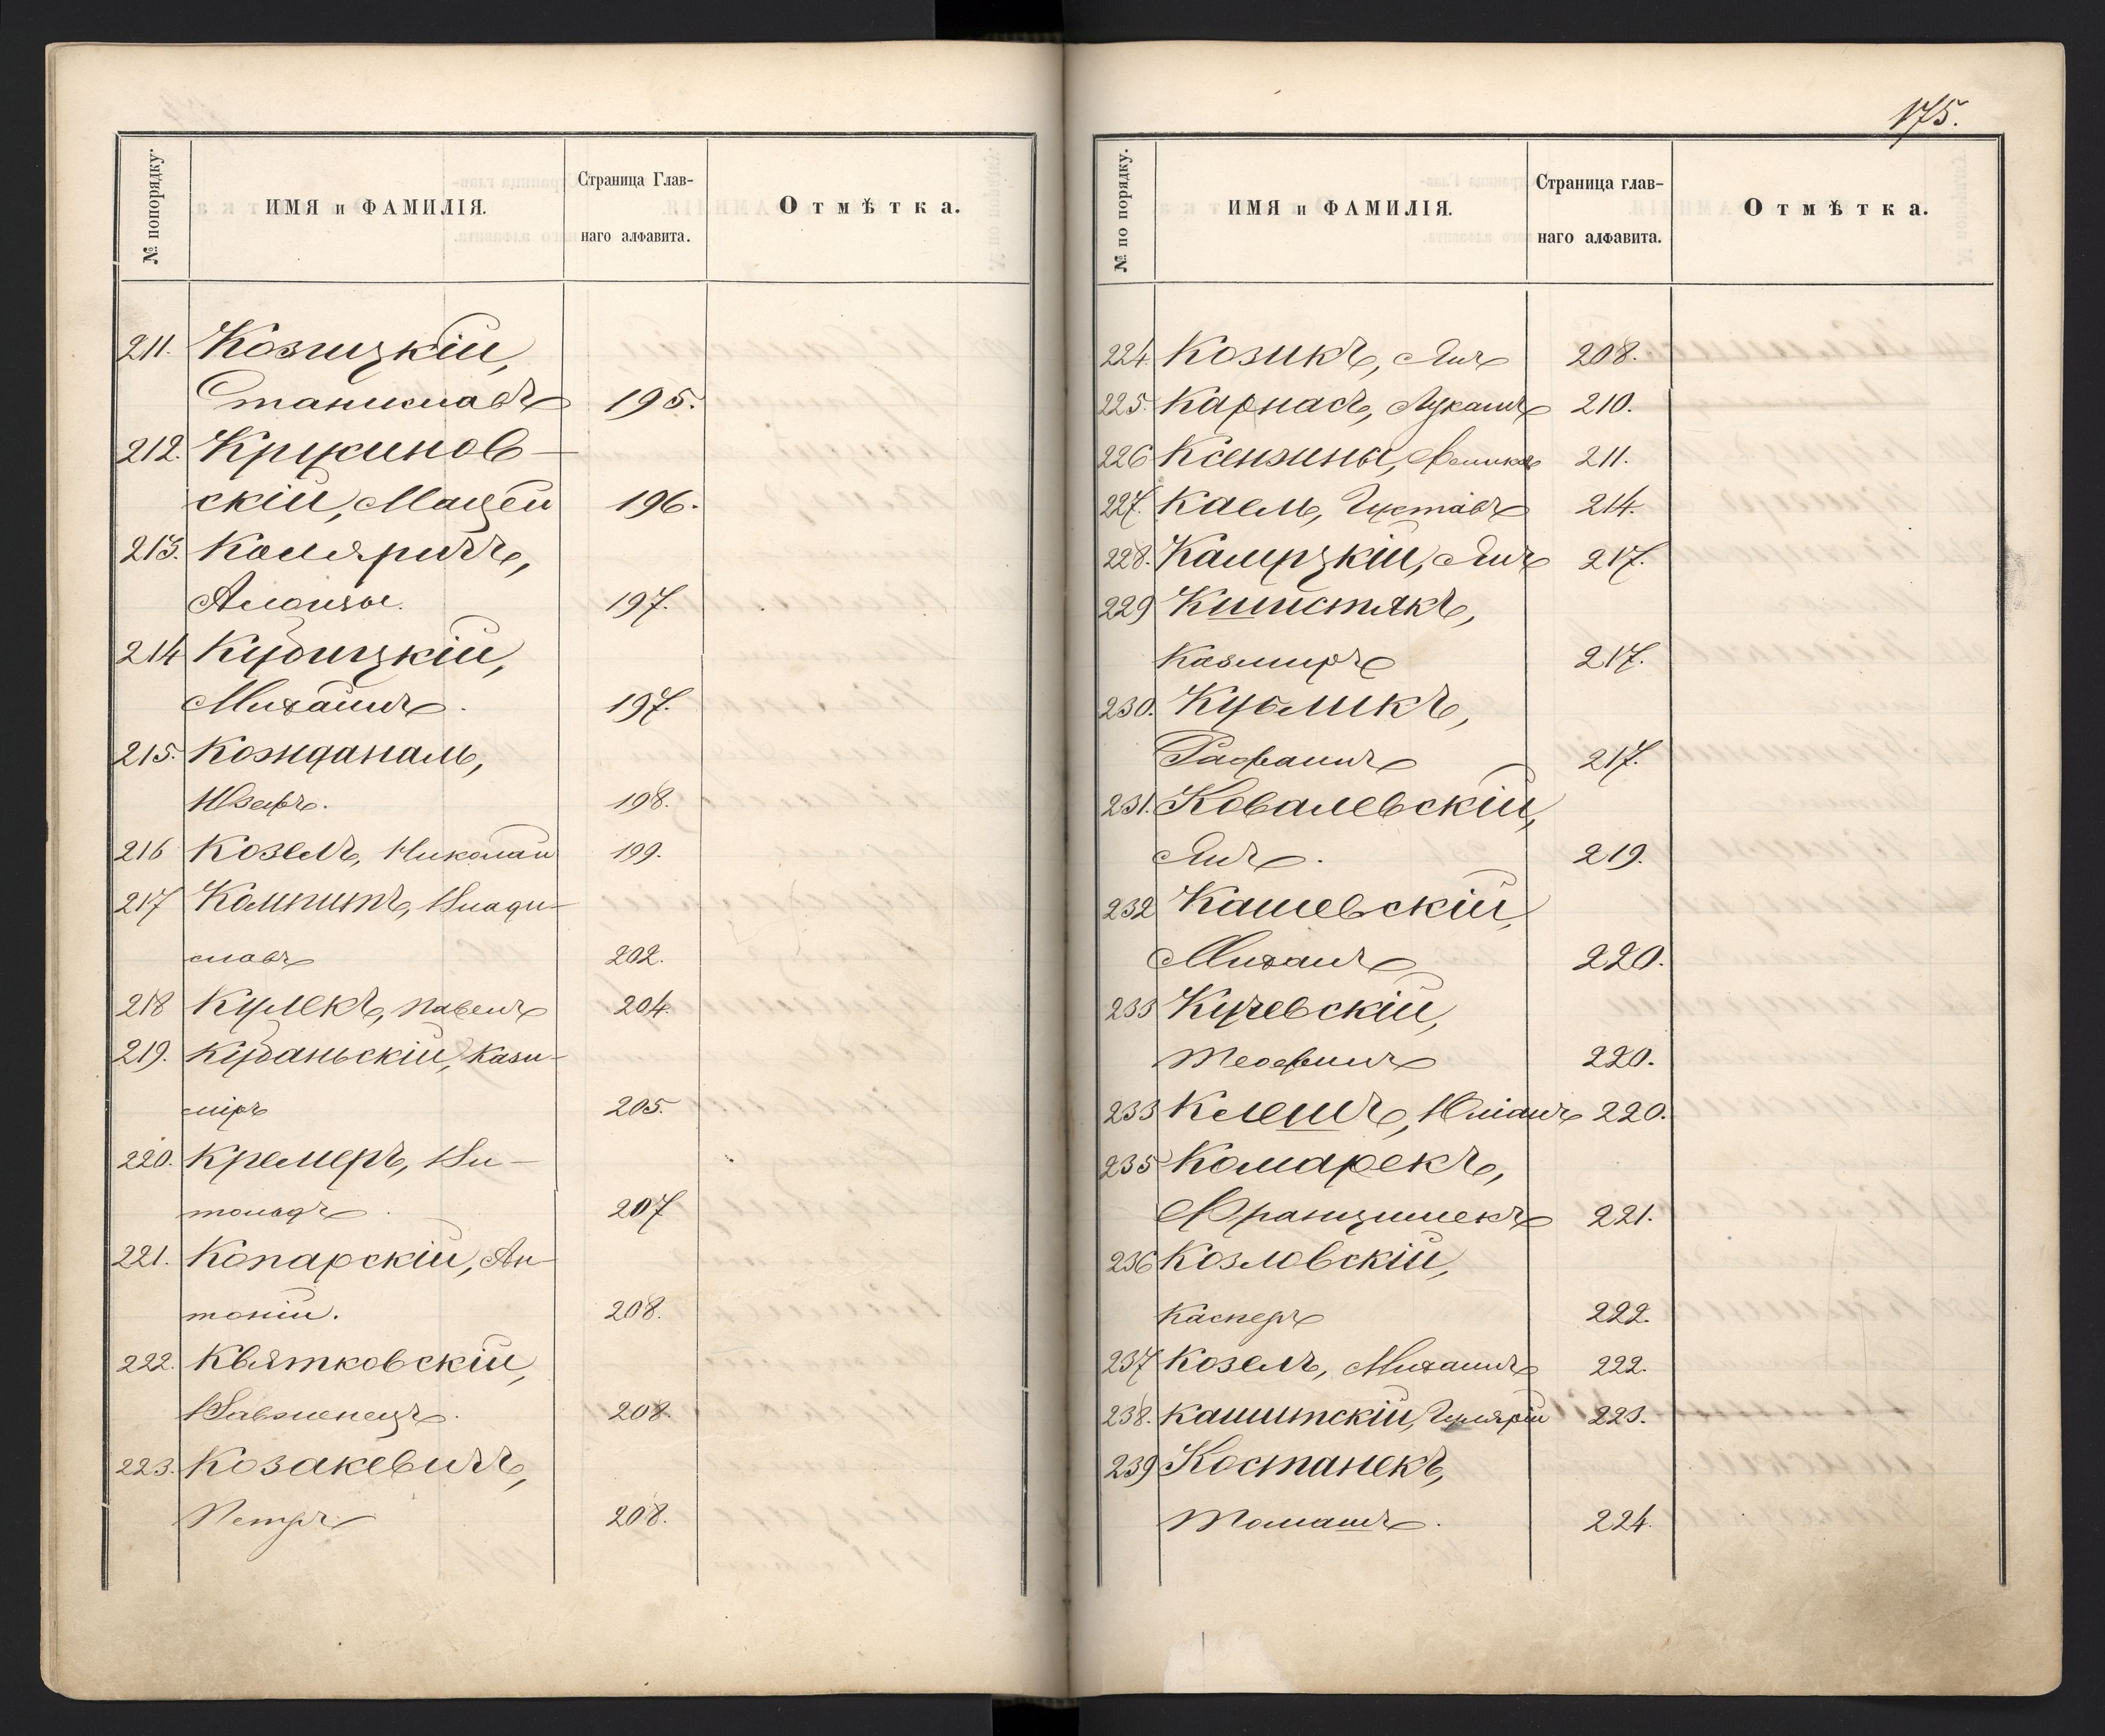 № попорядку.
ИМЯ и ФАМИЛІЯ.
Страница Глав-
наго алфавита.
Отмѣтка.
211. Козицкій,
Станиславъ 195.
212. Крусинов-
скій, Мацей 196.
213. Коляричъ,
Алоизы. 197.
214 Кубицкій,
Михаилъ. 197.
215. Кожданаль,
Юзефъ. 198.
216 Козелъ, Николай 199.
217 Компитъ, Влади-
славъ 202.
218 Кулекъ, Павелъ 204.
219. Кубаньскій, Кази-
міръ 205.
220. Кремеръ, Ви-
тольдъ. 207
221. Копарскій, Ан-
тоній. 208.
222. Квятковскій,
Вавженецъ. 208.
223. Козакевичъ,
Петръ 208.
175.
№ по порядку.
ИМЯ и ФАМИЛІЯ.
Страница глав-
наго алфавита.
Отмѣтка.
224. Козикъ, Янъ 208.
225. Карнасъ, Лукашъ 210.
226 Ксензины, Феликсъ 211.
227. Каель, Густавъ 214.
228. Янъ 217.
229 Кшистякъ,
Казміръ 217.
230. Кубликъ,
Рафаилъ 217.
231. Ковалевскій,
Янъ. 219.
232 Кашевскій,
Михаилъ 220.
233 Кучевскій,
Теофилъ 220.
233 Клешъ, Юліанъ 220.
235 Комарекъ,
Францишекъ 221.
236 Козловскій,
Касперъ 222.
237 Козелъ, Михаилъ 222.
238. 223.
239 Костанекъ,
Томашъ. 224.